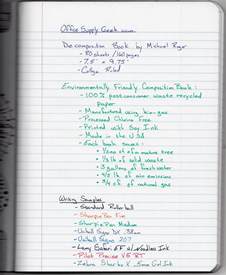 Office Supply Geek .com
Decomposition Book by Michael Roger
- 80 sheets / 160 pages
- 7.5" x 9.75"
- College Ruled
Environmentally Friendly Composition Book:
- 100% post-consumer waste recycled
paper
- Manufactured using bio-gas
- Processed Chlorine Free
- Printed with Soy Ink
- Made in the USA
- Each book saves:
of a mature tree
lb of solid waste
gallons of freshwater
lb of air emissions
of natural gas
Writing Samples
- Standard Rollerball
- Sharpie Pen Fine
- Sharpie Pen Medium
- Uniball Signo DX .38mm
- Uniball Signo 207
- Lamy Safari EF w/ Noodlers Ink
- Pilot Precise V5 RT
- Zebra Sharbo X Gel Ink